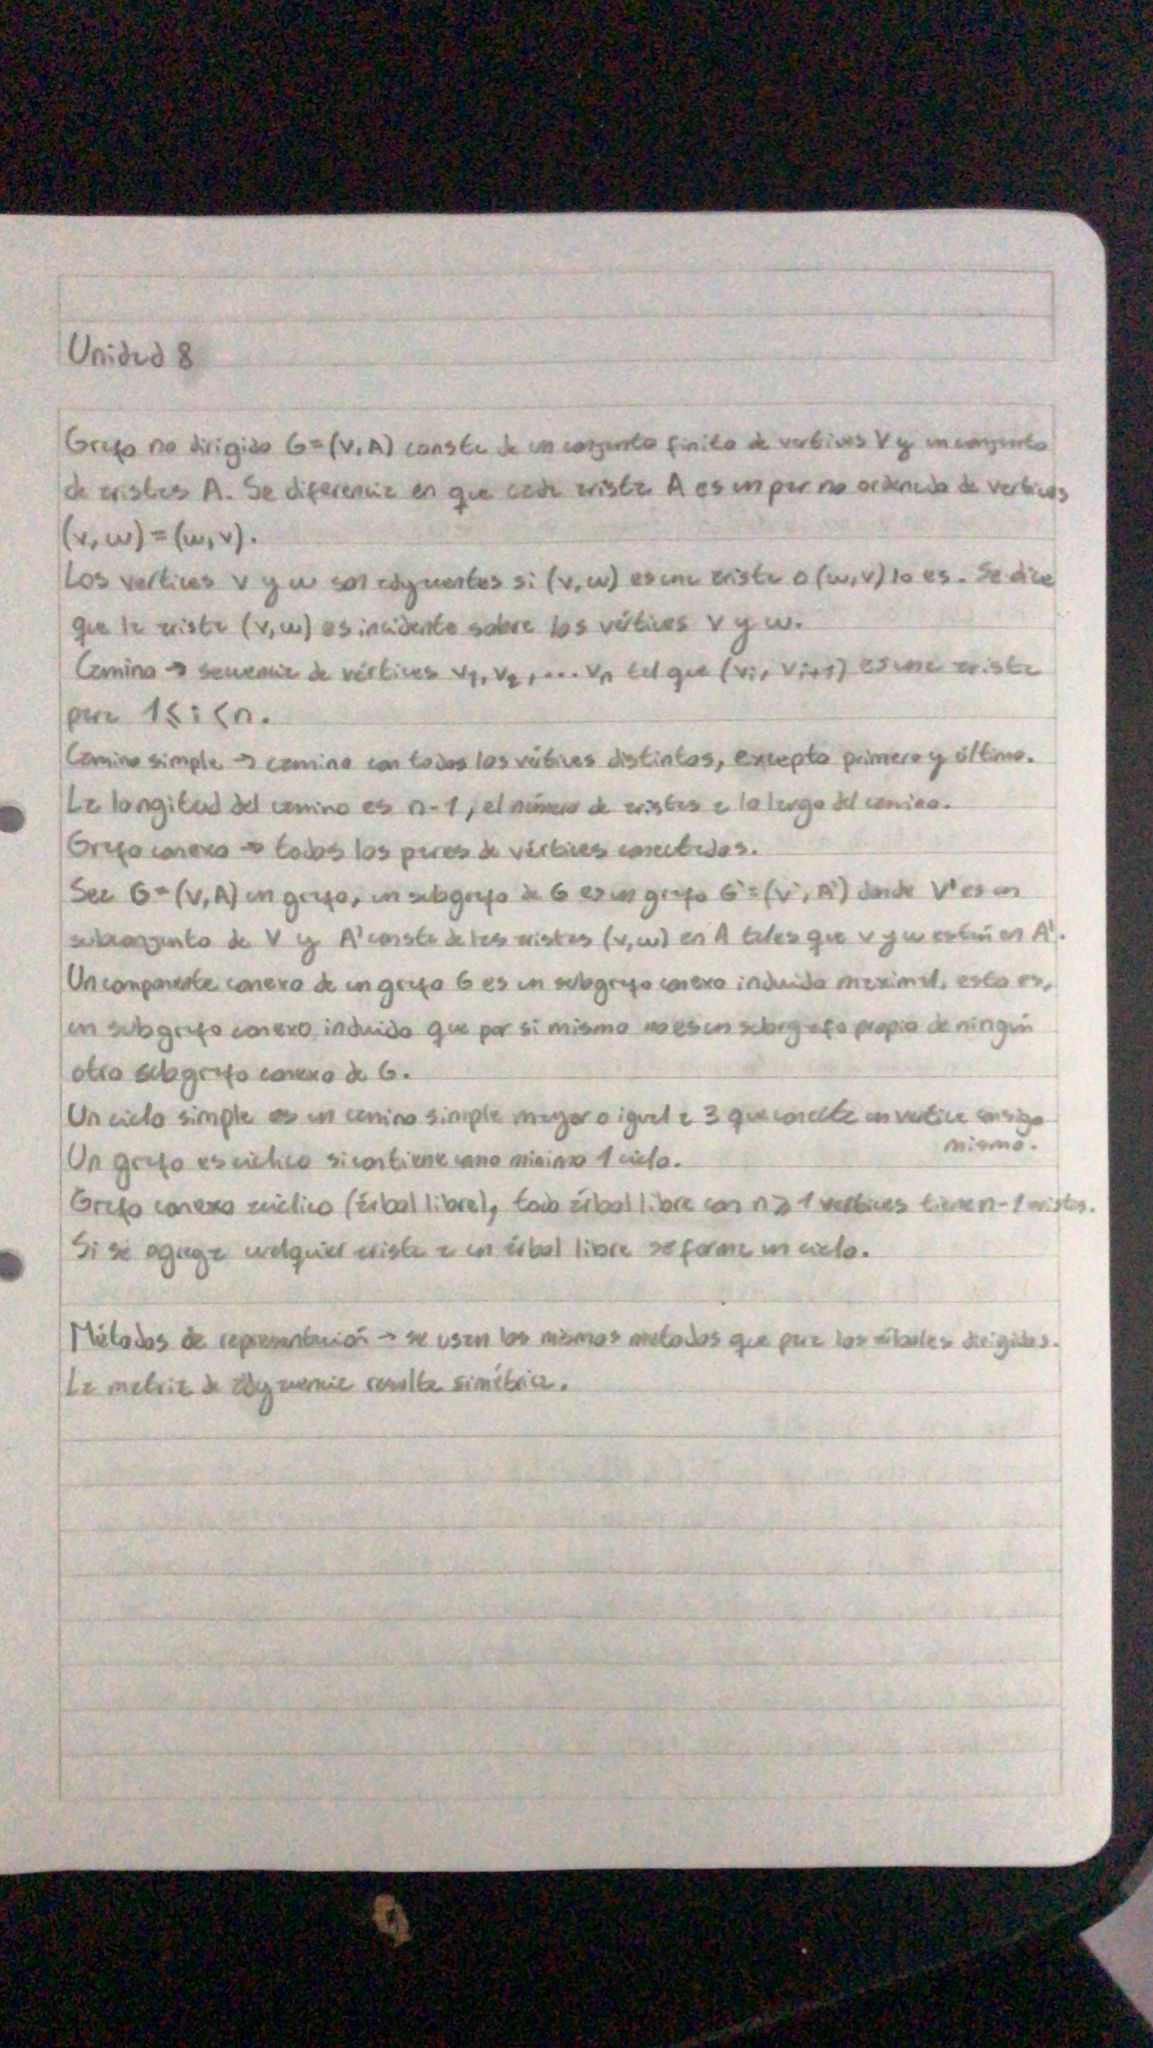 Unidad 8
Grafo no dirigido G=(V,A) consta de un conjunto finito de vertices V y un conjunto
de aristas A. Se diferencia en que cada arista A es un par no ordenado de vertices
(v,w)=(w,v).
Los vertices v y w son adyacentes si (v,w) es una arista o (w,v) lo es. Se dice
que la arista (v,w) es incidente sobre los vértices v y w.
Camino → secuencia de vértices v1, v2, ... vn tal que (vi, vi+1) es una arista
para 1≤i<n.
Camino simple → camino con todos los vértices distintos, excepto primero y último.
La longitud del camino es n-1, el número de aristas a lo largo del camino.
Grafo conexo → todos los pares de vértices conectados.
Sea G=(V,A) un grafo, un subgrafo de G es un grafo G'=(V',A') donde V' es un
subconjunto de V y A' consta de las aristas (v,w) en A tales que v y w están en A'.
Un componente conexo de un grafo G es un subgrafo conexo inducido maximal, esto es,
un subgrafo conexo inducido que por si mismo no es un subgrafo propio de ningún
otro subgrafo conexo de G.
Un ciclo simple es un camino simple mayor o igual a 3 que conecta un vertice consigo
mismo.
Un grafo es cíclico si contiene como minimo 1 ciclo.
Grafo conexo acíclico (árbol libre), todo árbol libre con n≥1 vertices tiene n-1 aristas.
Si se agrega cualquier arista a un árbol libre se forma un ciclo.
Métodos de representación → se usan los mismos metodos que para los árboles dirigidos.
La matriz de adyacencia resulta simétrica.